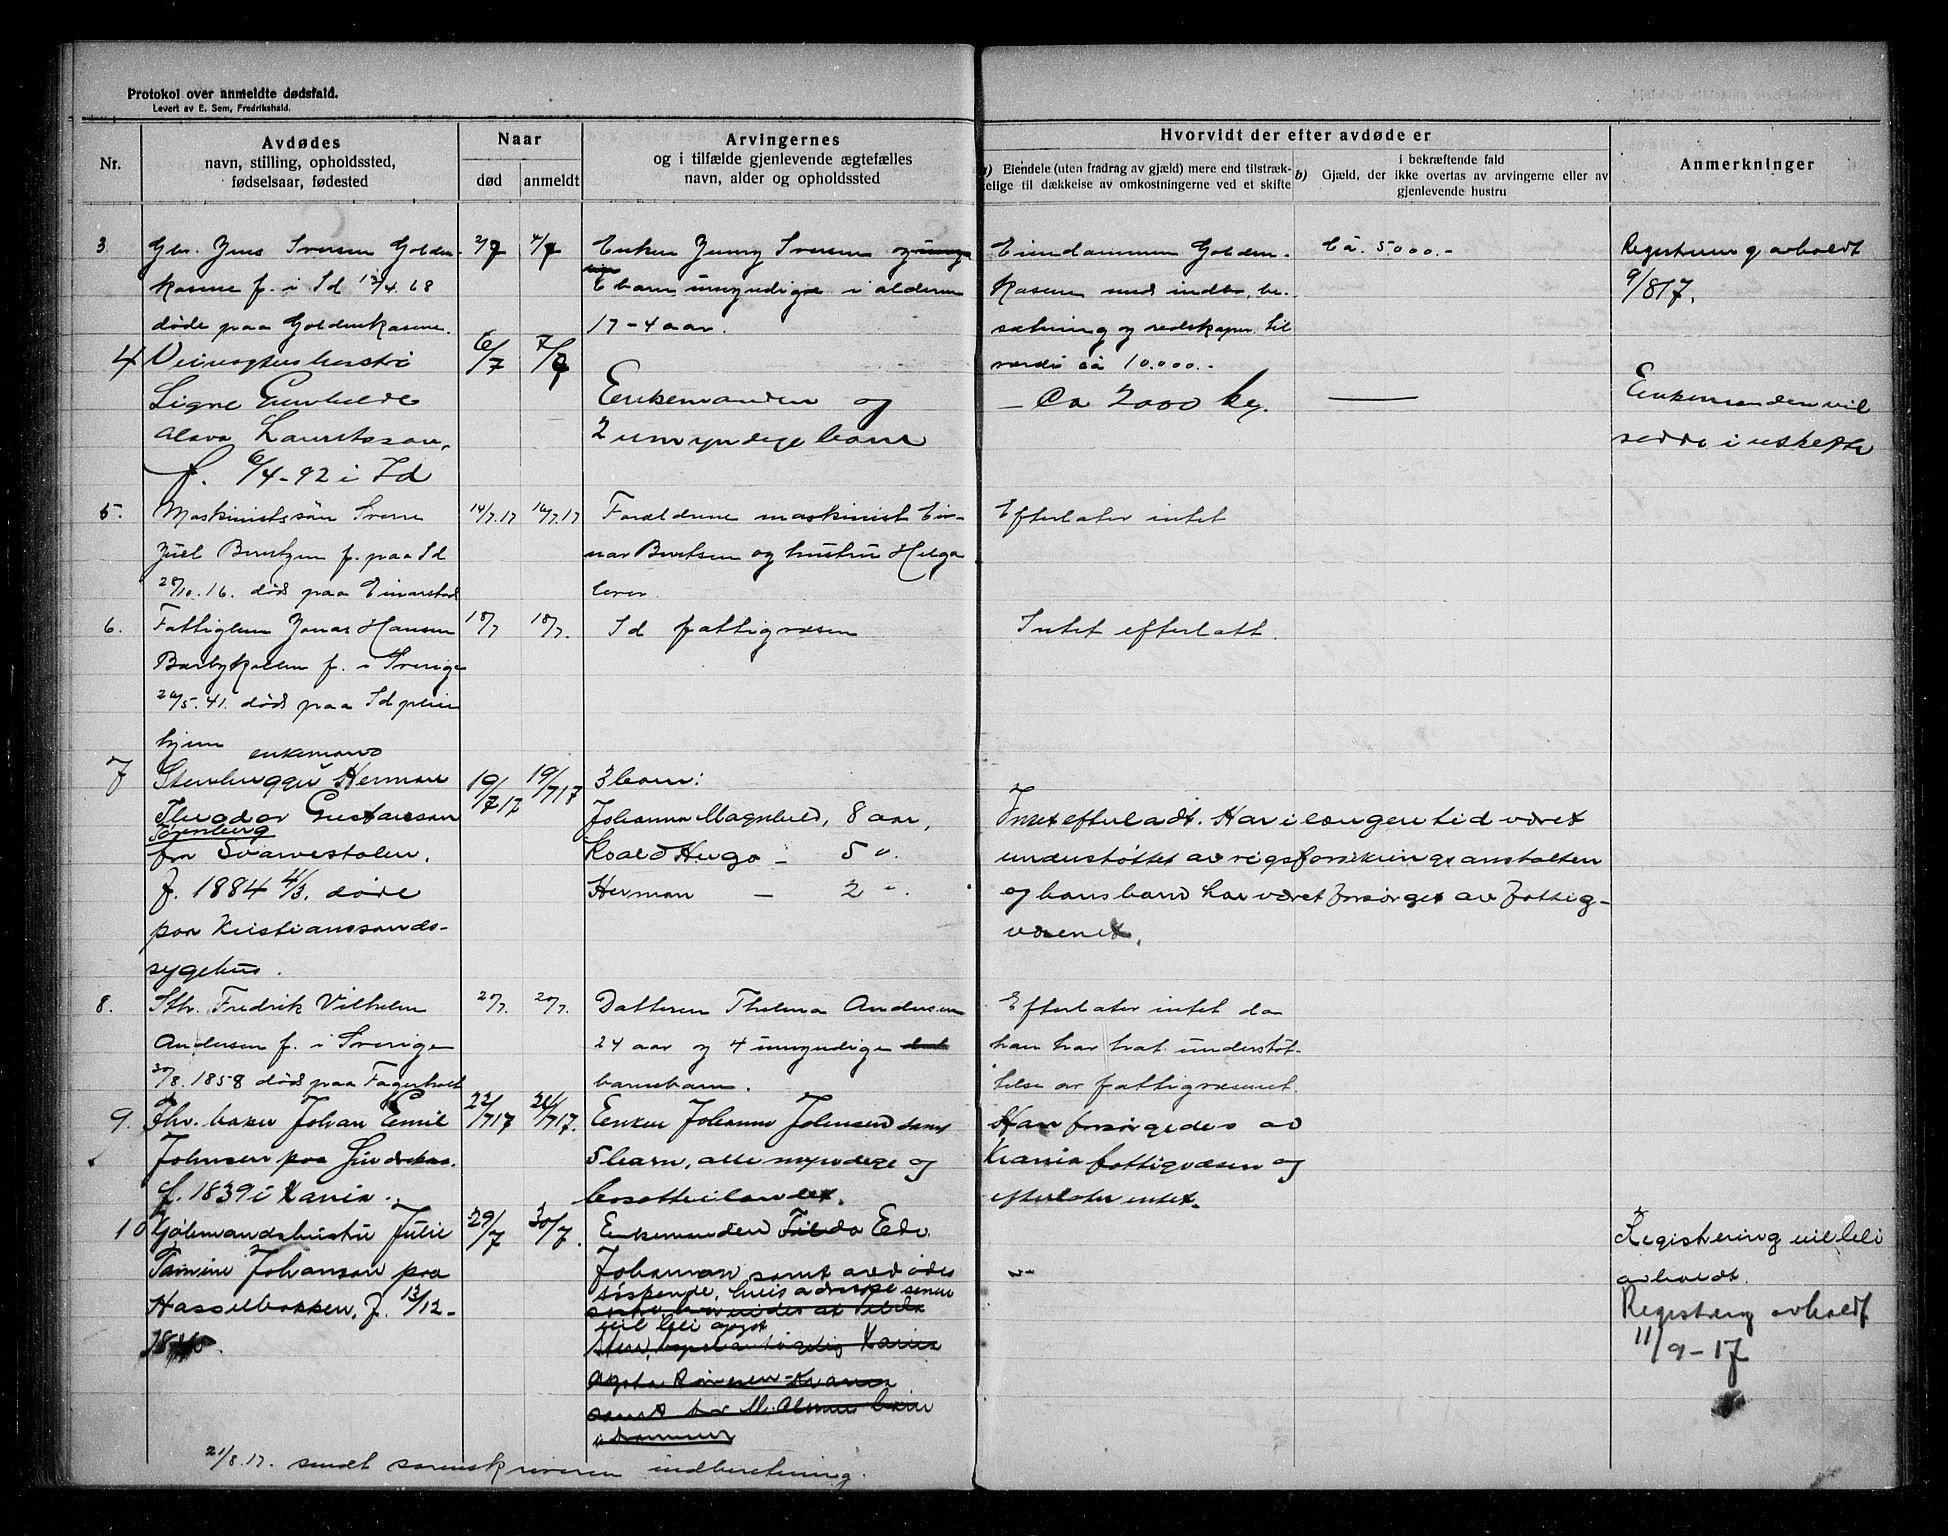 Protokol over anmeldte dødsfald.
Levert av E. Sem, Fredrikshald.
Nr.
Avdødes
navn, stilling, opholdssted,
fødselsaar, fødested
Naar
død
anmeldt
Arvingernes
og i tilfælde gjenlevende ægtefælles
navn, alder og opholdssted
Hvorvidt der efter avdøde er
a) Eiendele (uten fradrag av gjæld) mere end tilstræk-
kelige til dækkelse av omkostningerne ved et skifte
i bekræftende fald
b) Gjæld, der ikke overtas av arvingerne eller av
gjenlevende hustru
Anmerkninger
3.
Gbr. Jens Iversen Golden-
kasene f. i Id 12/4.68
døde paa Goldenkasene.
2/7
4/7
Enken Jenny Iversen
barn umyndige i alderen
17-4 aar.
Eiendommen Golden-
kasene med indbo, be-
sætning og redskaper til
værdi ca 10.000.-
Ca. 5000.-
Registrering avholdt
9/8 17.
4
Veivogterhustru
Signe
Lauritssen,
f. 6/4-92 i Id
6/7
7/7
Enkemanden og
2 umyndige barn
- Ca 2000 kr.
Enkemanden vil
sidde i uskifte
5.
Maskinistsøn Sverre
Juel Berntzen f. paa Id
28/10.16. død paa Einarstad
14/7.17
16/7.17
Forældrene maskinist Ei-
nar Berntsen og hustru Helga
lever
Efterlater intet
6.
Fattiglem Jonas Hansen
f. i Sverige
26/5.41. død paa Id pleie
hjem
18/7
18/7.
Id fattigvæsen
Intet efterlatt.
7
enkemand
Stenhugger Herman
Theodor Gustavsen
Tørnberg
fra Svarvestolen.
f. 1884 4/3. døde
paa Kristianssands-
sygehus.
19/7 17
19/7 17
3 barn:
Johanna Magnhild, 8 aar,
Roald Hugo - 5 ".
Herman - 2 ".
Intet efterladt. Har i længere tid været
understøttet av rigsforsikringsanstalten
og hans barn har været forsørget av fattig-
væsenet.
8.
Sth. Fredrik Vilhelm
Andersen f. i Sverige
30/8. 1858 død paa Fagerholt
20/7.
20/7.
Datteren Thelma Andersen
24 aar og 4 umyndige
barnebarn.
Efterlater intet da
han har hat understøt-
telse av fattigvæsenet.
9.
Fhv. baker Johan Emil
Johnsen paa
f. 1839 i Xania.
22/7 17
24/7 17.
Enken Johanne Johnsen samt
5 barn, alle myndige og
bosatte i landet.
Han forsørgedes av
Krania fattigvæsen og
efterlater intet.
10
Gjølmandshustru Julie
Tamine Johansen paa
Hasselbakken, f. 13/12-
29/7
30/7.
Enkemanden Edv.
Johansen samt avdødes
søskende, hvis adresse senere
vil bli opgit
- " -
Registrering vil bli
avholdt.
Registrering avholdt
11/9-17
21/8.17. sendt sorenskriveren indberetning.